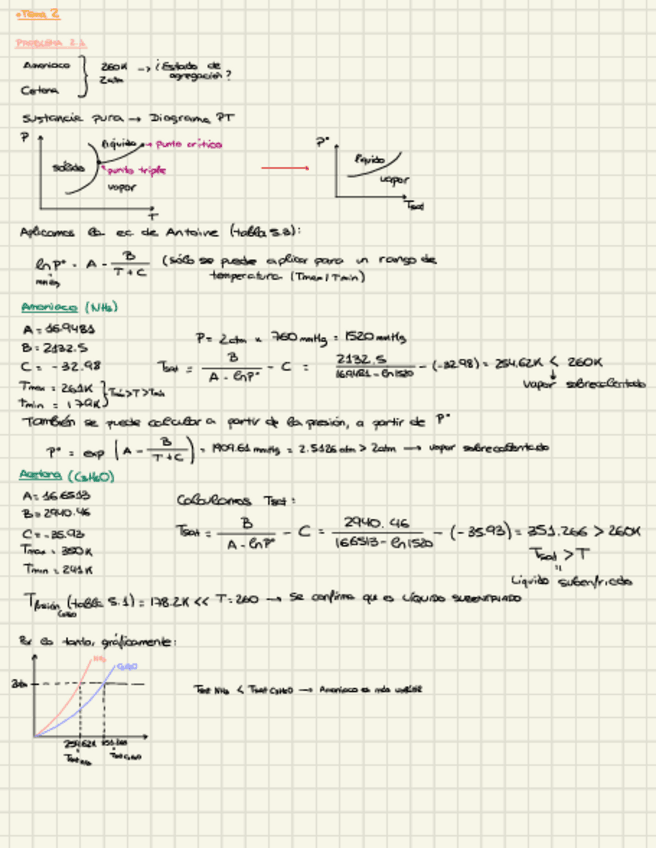 • Tema 2
PROBLEMA 2.1
Amoniaco } 260K → ¿Estado de
Cetona } 2atm agregación?
Sustancia pura → Diagrama PT
P
líquido → punto crítico
sólido
punto triple
vapor
T
P°
líquido
vapor
Tsat
Aplicamos la ec de Antoine (tabla 5.3):
ln P° = A - B / (T + C) (sólo se puede aplicar para un rango de
mmHg temperatura (Tmax/Tmin)
Amoniaco (NH3)
A = 16.9481
B = 2132.5
C = -32.98
Tmax = 261K } Tmáx>T>Tmin
Tmin = 179K
P = 2atm × 760 mmHg = 1520 mmHg
Tsat = B / (A - ln P°) - C = 2132.5 / (16.9481 - ln 1520) - (-32.98) = 254.62K < 260K
vapor sobrecalentado
También se puede calcular a partir de la presión, a partir de P°
P° = exp (A - B / (T + C)) = 1909.61 mmHg = 2.5126 atm > 2atm → vapor sobrecalentado
Acetona (C3H6O)
A = 16.6513
B = 2940.46
C = -35.93
Tmax = 350K
Tmin = 241K
Calculamos Tsat:
Tsat = B / (A - ln P°) - C = 2940.46 / (16.6513 - ln 1520) - (-35.93) = 351.266 > 260K
Tsat > T
Líquido subenfriado
Tfusión C3H6O (tabla 5.1) = 178.2K << T = 260 → Se confirma que es LÍQUIDO SUBENFRIADO
Por lo tanto, gráficamente:
NH3
C3H6O
2atm
254.62K
351.266
Tsat NH3
Tsat C3H6O
Tsat NH3 < Tsat C3H6O → Amoniaco es más volátil